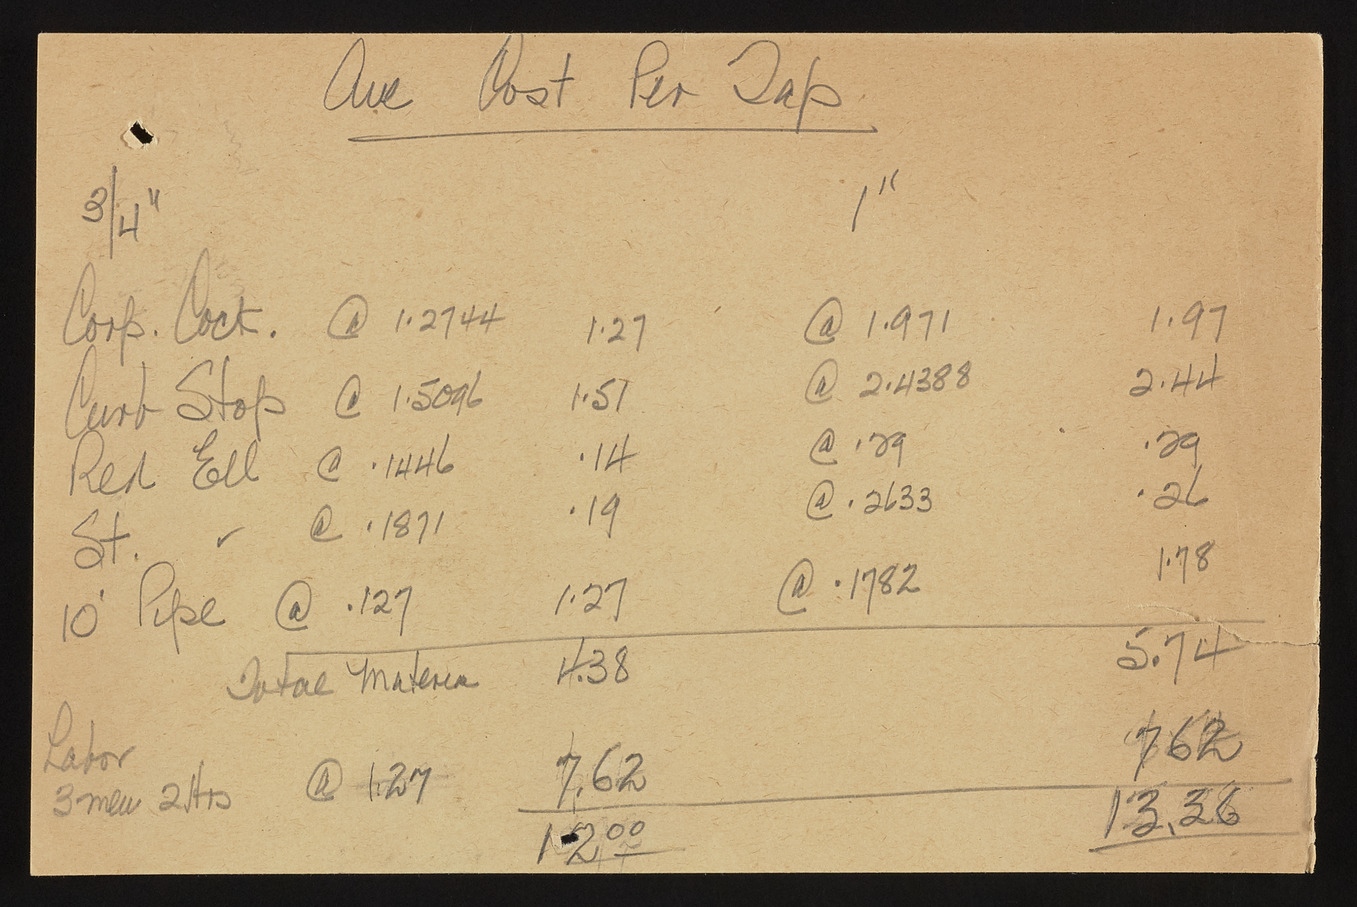 Ave Cost Per Tap
3/4" 1"
Corp. Cock. @ 1.2744 1.27 @ 1.971 1.97
Curb Stop @ 1.5096 1.51 @ 2.4388 2.44
Red Ell @ .1446 .14 @ .29 .29
St. " @ .1871 .19 @ .2633 .26
10' Pipe @ .127 1.27 @ .1782 1.78
Total Materia 4.38 5.74
Labor
3 men 2 Hrs @ 1.27 7.62 7 62
12 00 13.36